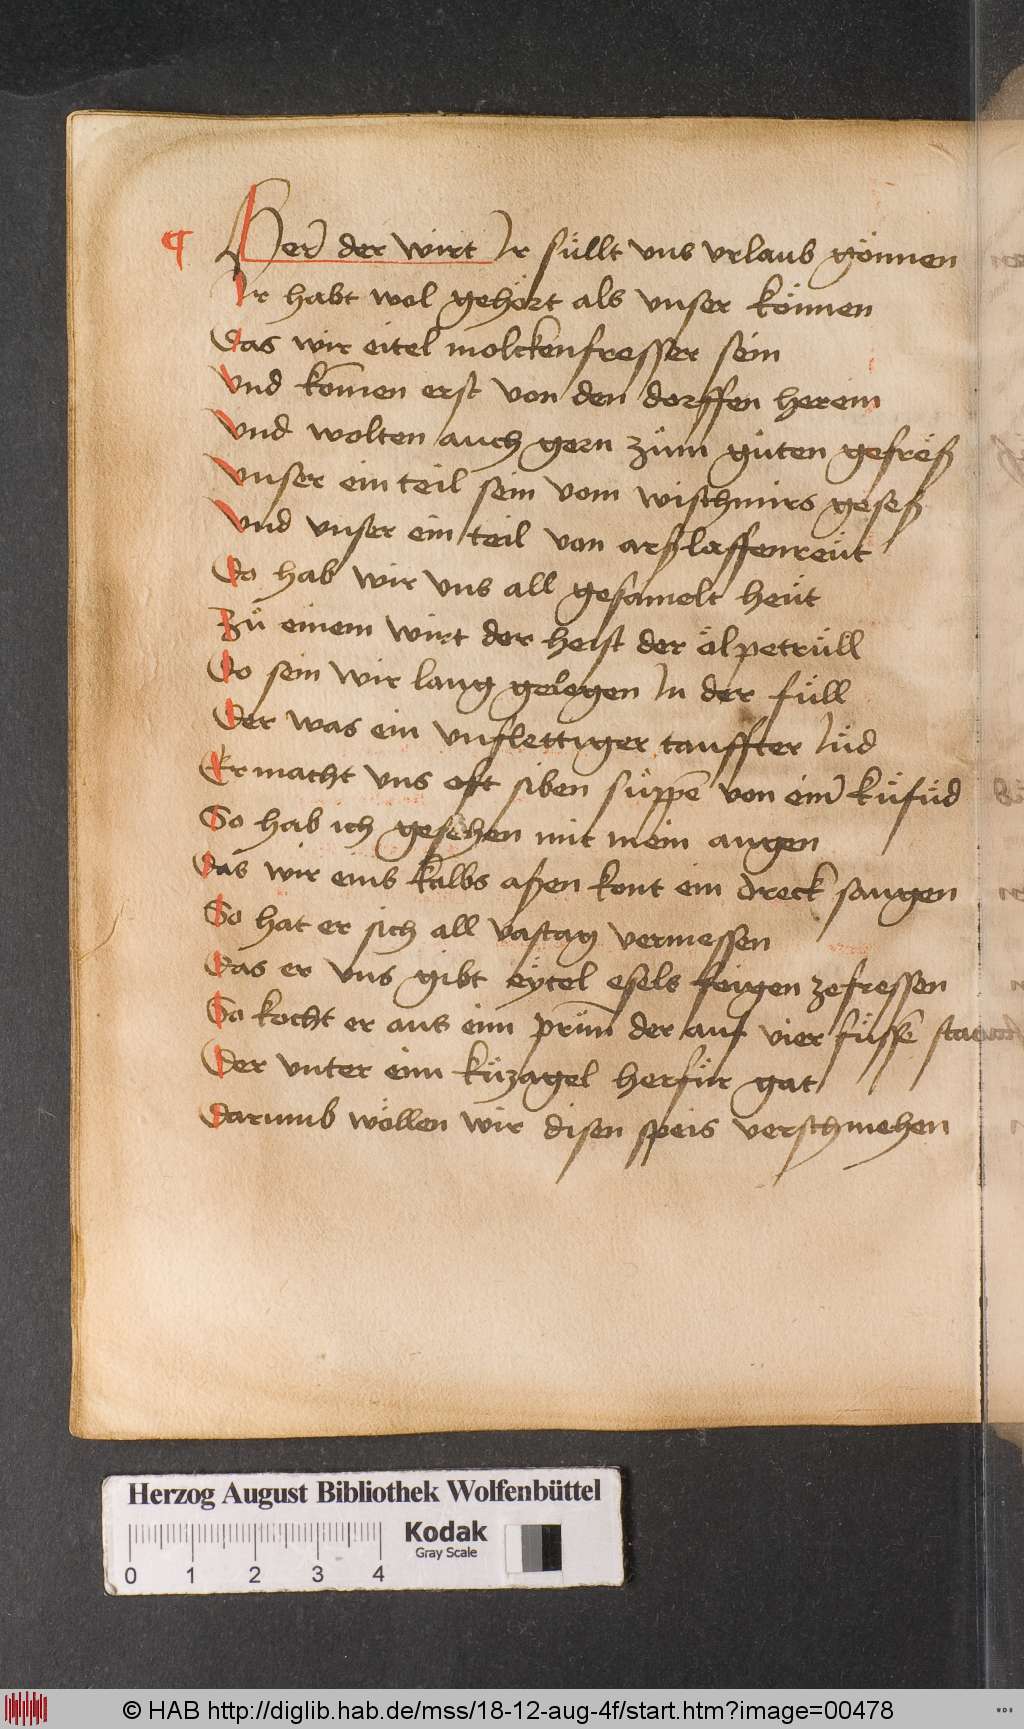 ¶ Her der wirt Ir süllt vns vrlaub gönnen
Ir habt wol gehört als vnser können
Das wir eitel molckenfresser sein
vnd komen erst von den dorffen herein
vnd wolten auch gern züm güten gefreß
vnser ein teil sein vom wischmirs geseß
vnd vnser ein teil von arßlaffenreüt
Do hab wir vns all gesamelt heüt
Zü einem wirt der heist der ölpetrüll
Do sein wir lang gelegen In der füll
Der was ein vnflettiger tauffter Iüd
Er macht vns oft siben süppe von eim küfüd
So hab ich gesehen mit mein augen
Das wir eins kalbs aßen kont ein dreck saugen
So hat er sich all vastag vermessen
Das er vns gibt eÿtel esels feigen zefressen
So kocht er aus eim prün der auf vier füsse
Der vnter eim küzagel herfür gat
Darumb wöllen wir disen speis verschmehen
Herzog August Bibliothek Wolfenbüttel
Kodak
Gray Scale
0 1 2 3 4
© HAB http://diglib.hab.de/mss/18-12-aug-4f/start.htm?image=00478